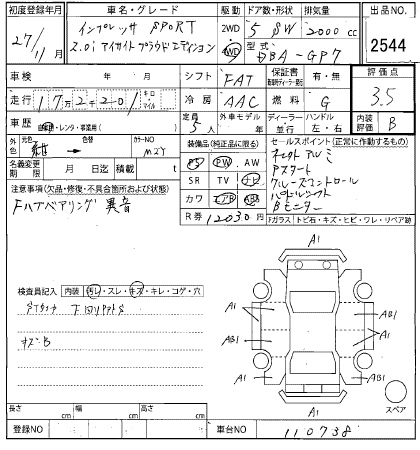 初度登録年月 車名・グレード 駆動 ドア数・形状 排気量 出品NO.
27/11月 インプレッサ SPORT 2WD 5 SW 2000 cc
2.0i アイサイト プラウド エディション 4WD 型式 DBA-GP7 2544
車検 年 月 シフト FAT 保証書 有・無 評価点
走行 17万2220 キロ マイル 冷房 AAC 燃料 G 3.5
車歴 自家用・レンタ・事業用( ) 定員 5人 外車モデル 年 ディーラー 並行 ハンドル 左・右 内装評価 B
外色 元色 紺 色替 カラーNO
装備品(純正品に限る) セールスポイント(正常に作動するもの)
名義変更期限 月 日迄 積載 t
PS PW AW
SR TV ナビ
カワ エアB ABS
R券 12030円
純正アルミ
Pスタート
クルーズコントロール
パドルシフト
Bモニター
注意事項(欠品・修復・不具合箇所および状態)
Fハブベアリング異音
Fガラス トビ石・キズ・ヒビ・ワレ・リペア跡
検査員記入 内装 汚レ・スレ・キズ・キレ・コゲ・穴
キズB
A1
A1
A1
AB1
AB1
A1
AB1
A1
スペア
長さ cm 幅 cm 高さ cm
登録NO 車台NO 110738